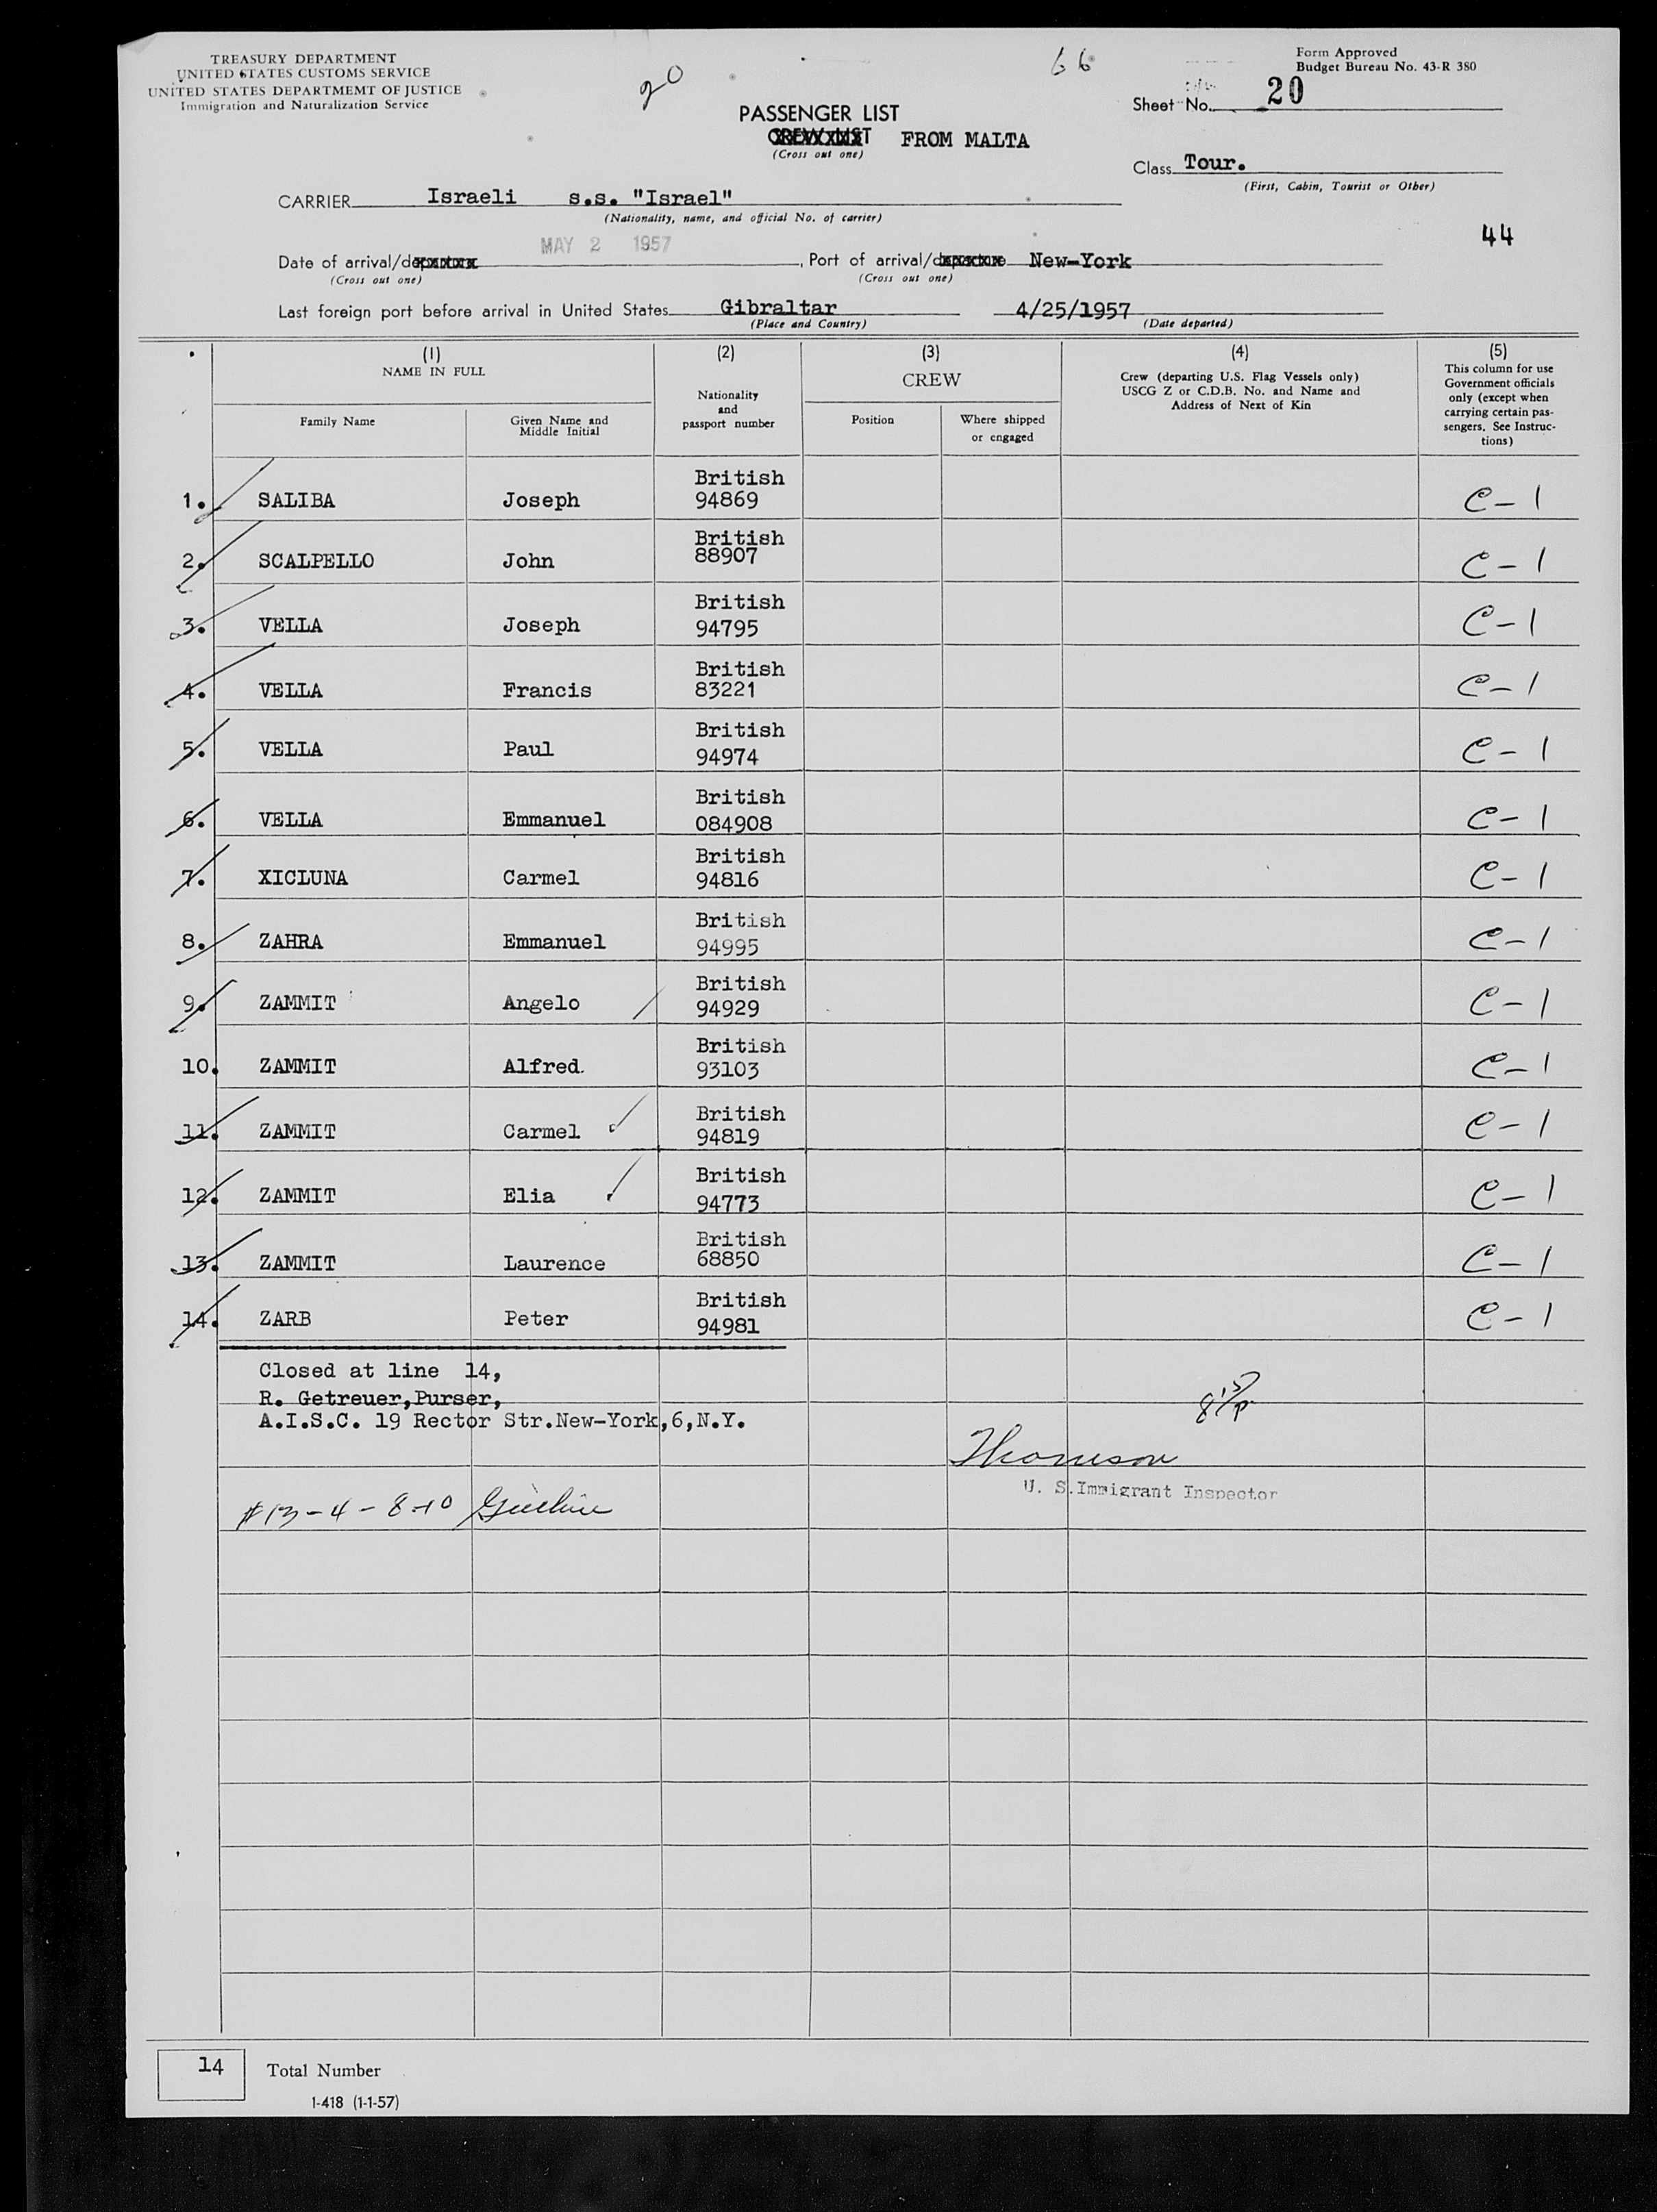 TREASURY DEPARTMENT
UNITED STATES CUSTOMS SERVICE
UNITED STATES DEPARTMEMT OF JUSTICE
Immigration and Naturalization Service
20
66
Form Approved
Budget Bureau No. 43-R 380
Sheet No. 20
PASSENGER LIST
CREW LIST FROM MALTA
(Cross out one)
Class Tour.
(First, Cabin, Tourist or Other)
CARRIER Israeli s.s. "Israel"
(Nationality, name, and official No. of carrier)
44
MAY 2 1957
Date of arrival/departure , Port of arrival/departure New-York
(Cross out one) (Cross out one)
Last foreign port before arrival in United States Gibraltar 4/25/1957
(Place and Country) (Date departed)
(1) NAME IN FULL
Family Name
Given Name and Middle Initial
(2) Nationality and passport number
(3) CREW
Position
Where shipped or engaged
(4) Crew (departing U.S. Flag Vessels only) USCG Z or C.D.B. No. and Name and Address of Next of Kin
(5) This column for use Government officials only (except when carrying certain passengers. See Instructions)
1. SALIBA Joseph British 94869 C-1
2. SCALPELLO John British 88907 C-1
3. VELLA Joseph British 94795 C-1
4. VELLA Francis British 83221 C-1
5. VELLA Paul British 94974 C-1
6. VELLA Emmanuel British 084908 C-1
7. XICLUNA Carmel British 94816 C-1
8. ZAHRA Emmanuel British 94995 C-1
9. ZAMMIT Angelo British 94929 C-1
10. ZAMMIT Alfred. British 93103 C-1
11. ZAMMIT Carmel British 94819 C-1
12. ZAMMIT Elia British 94773 C-1
13. ZAMMIT Laurence British 68850 C-1
14. ZARB Peter British 94981 C-1
Closed at line 14,
R. Getreuer,Purser,
A.I.S.C. 19 Rector Str.New-York,6,N.Y.
U. S. Immigrant Inspector
#13-4-8-10
14 Total Number
I-418 (1-1-57)